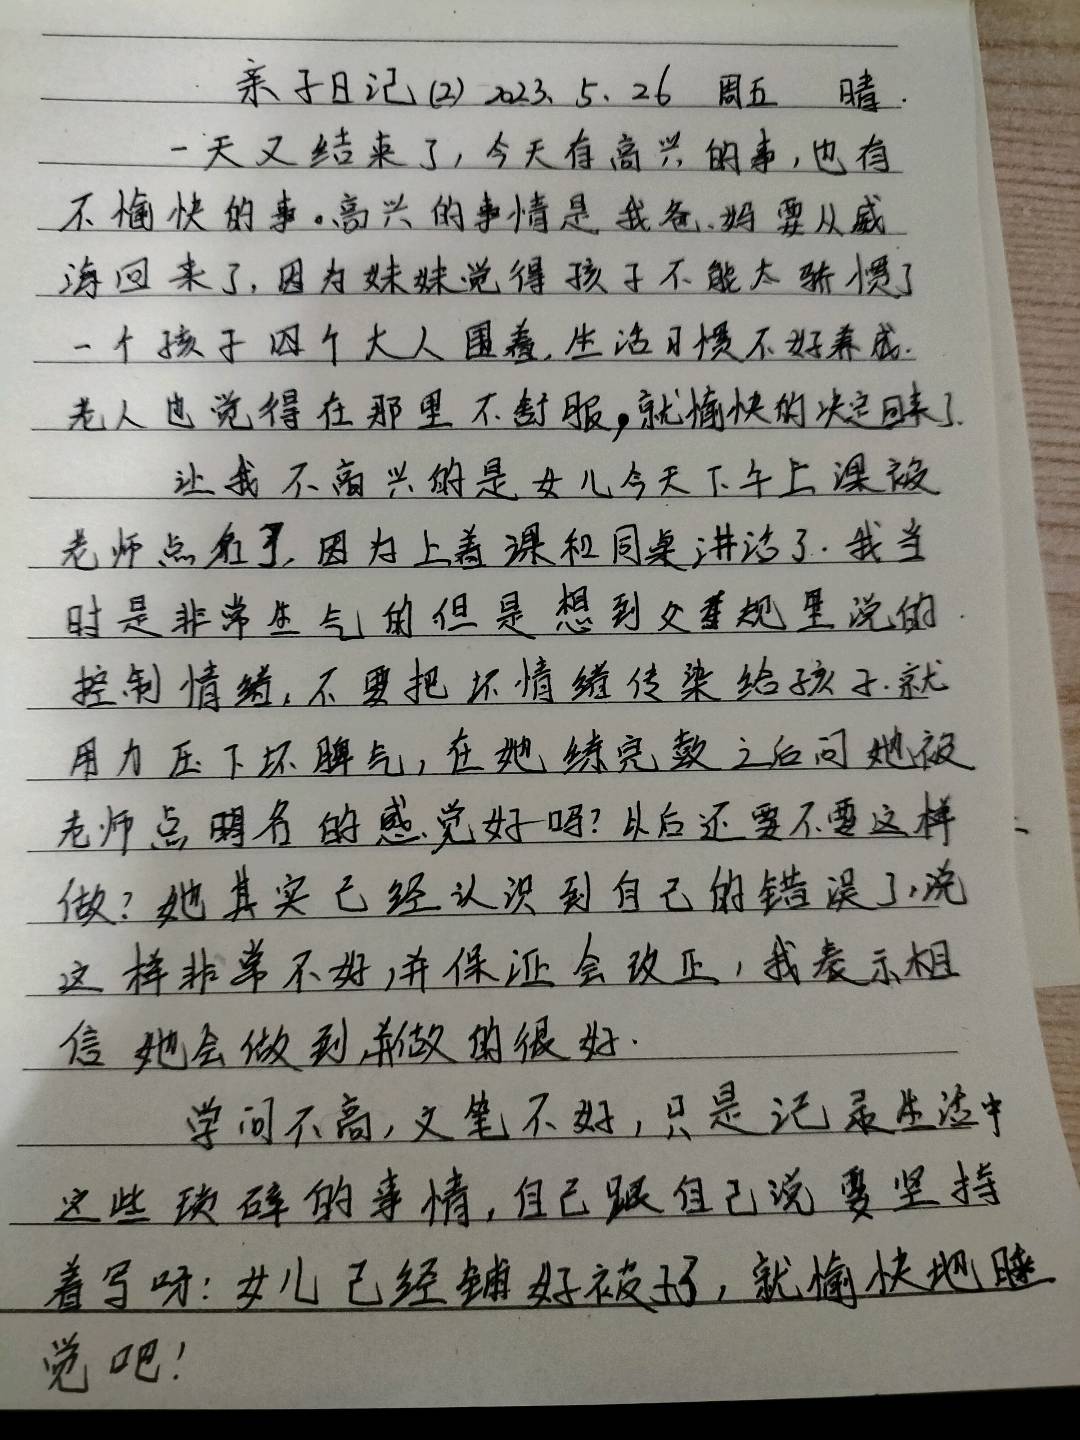 亲子日记(2) 2023、5、26 周五 晴.
一天又结束了,今天有高兴的事,也有
不愉快的事。高兴的事情是我爸、妈要从威
海回来了,因为妹妹觉得孩子不能太骄惯了
一个孩子四个大人围着,生活习惯不好养成.
老人也觉得在那里不舒服,就愉快的决定回来了.
让我不高兴的是女儿今天下午上课被
老师点名了,因为上着课和同桌讲话了.我当
时是非常生气的但是想到父辈规里说的.
控制情绪,不要把坏情绪传染给孩子.就
用力压下坏脾气,在她练完鼓之后问她被
老师点明名的感觉好吗?以后还要不要这样
做?她其实已经认识到自己的错误了,说
这样非常不好,并保证会改正,我表示相
信她会做到,并做的很好.
学问不高,文笔不好,只是记录生活中
这些琐碎的事情,自己跟自己说要坚持
着写呀:女儿已经铺好被子了,就愉快地睡
觉吧!